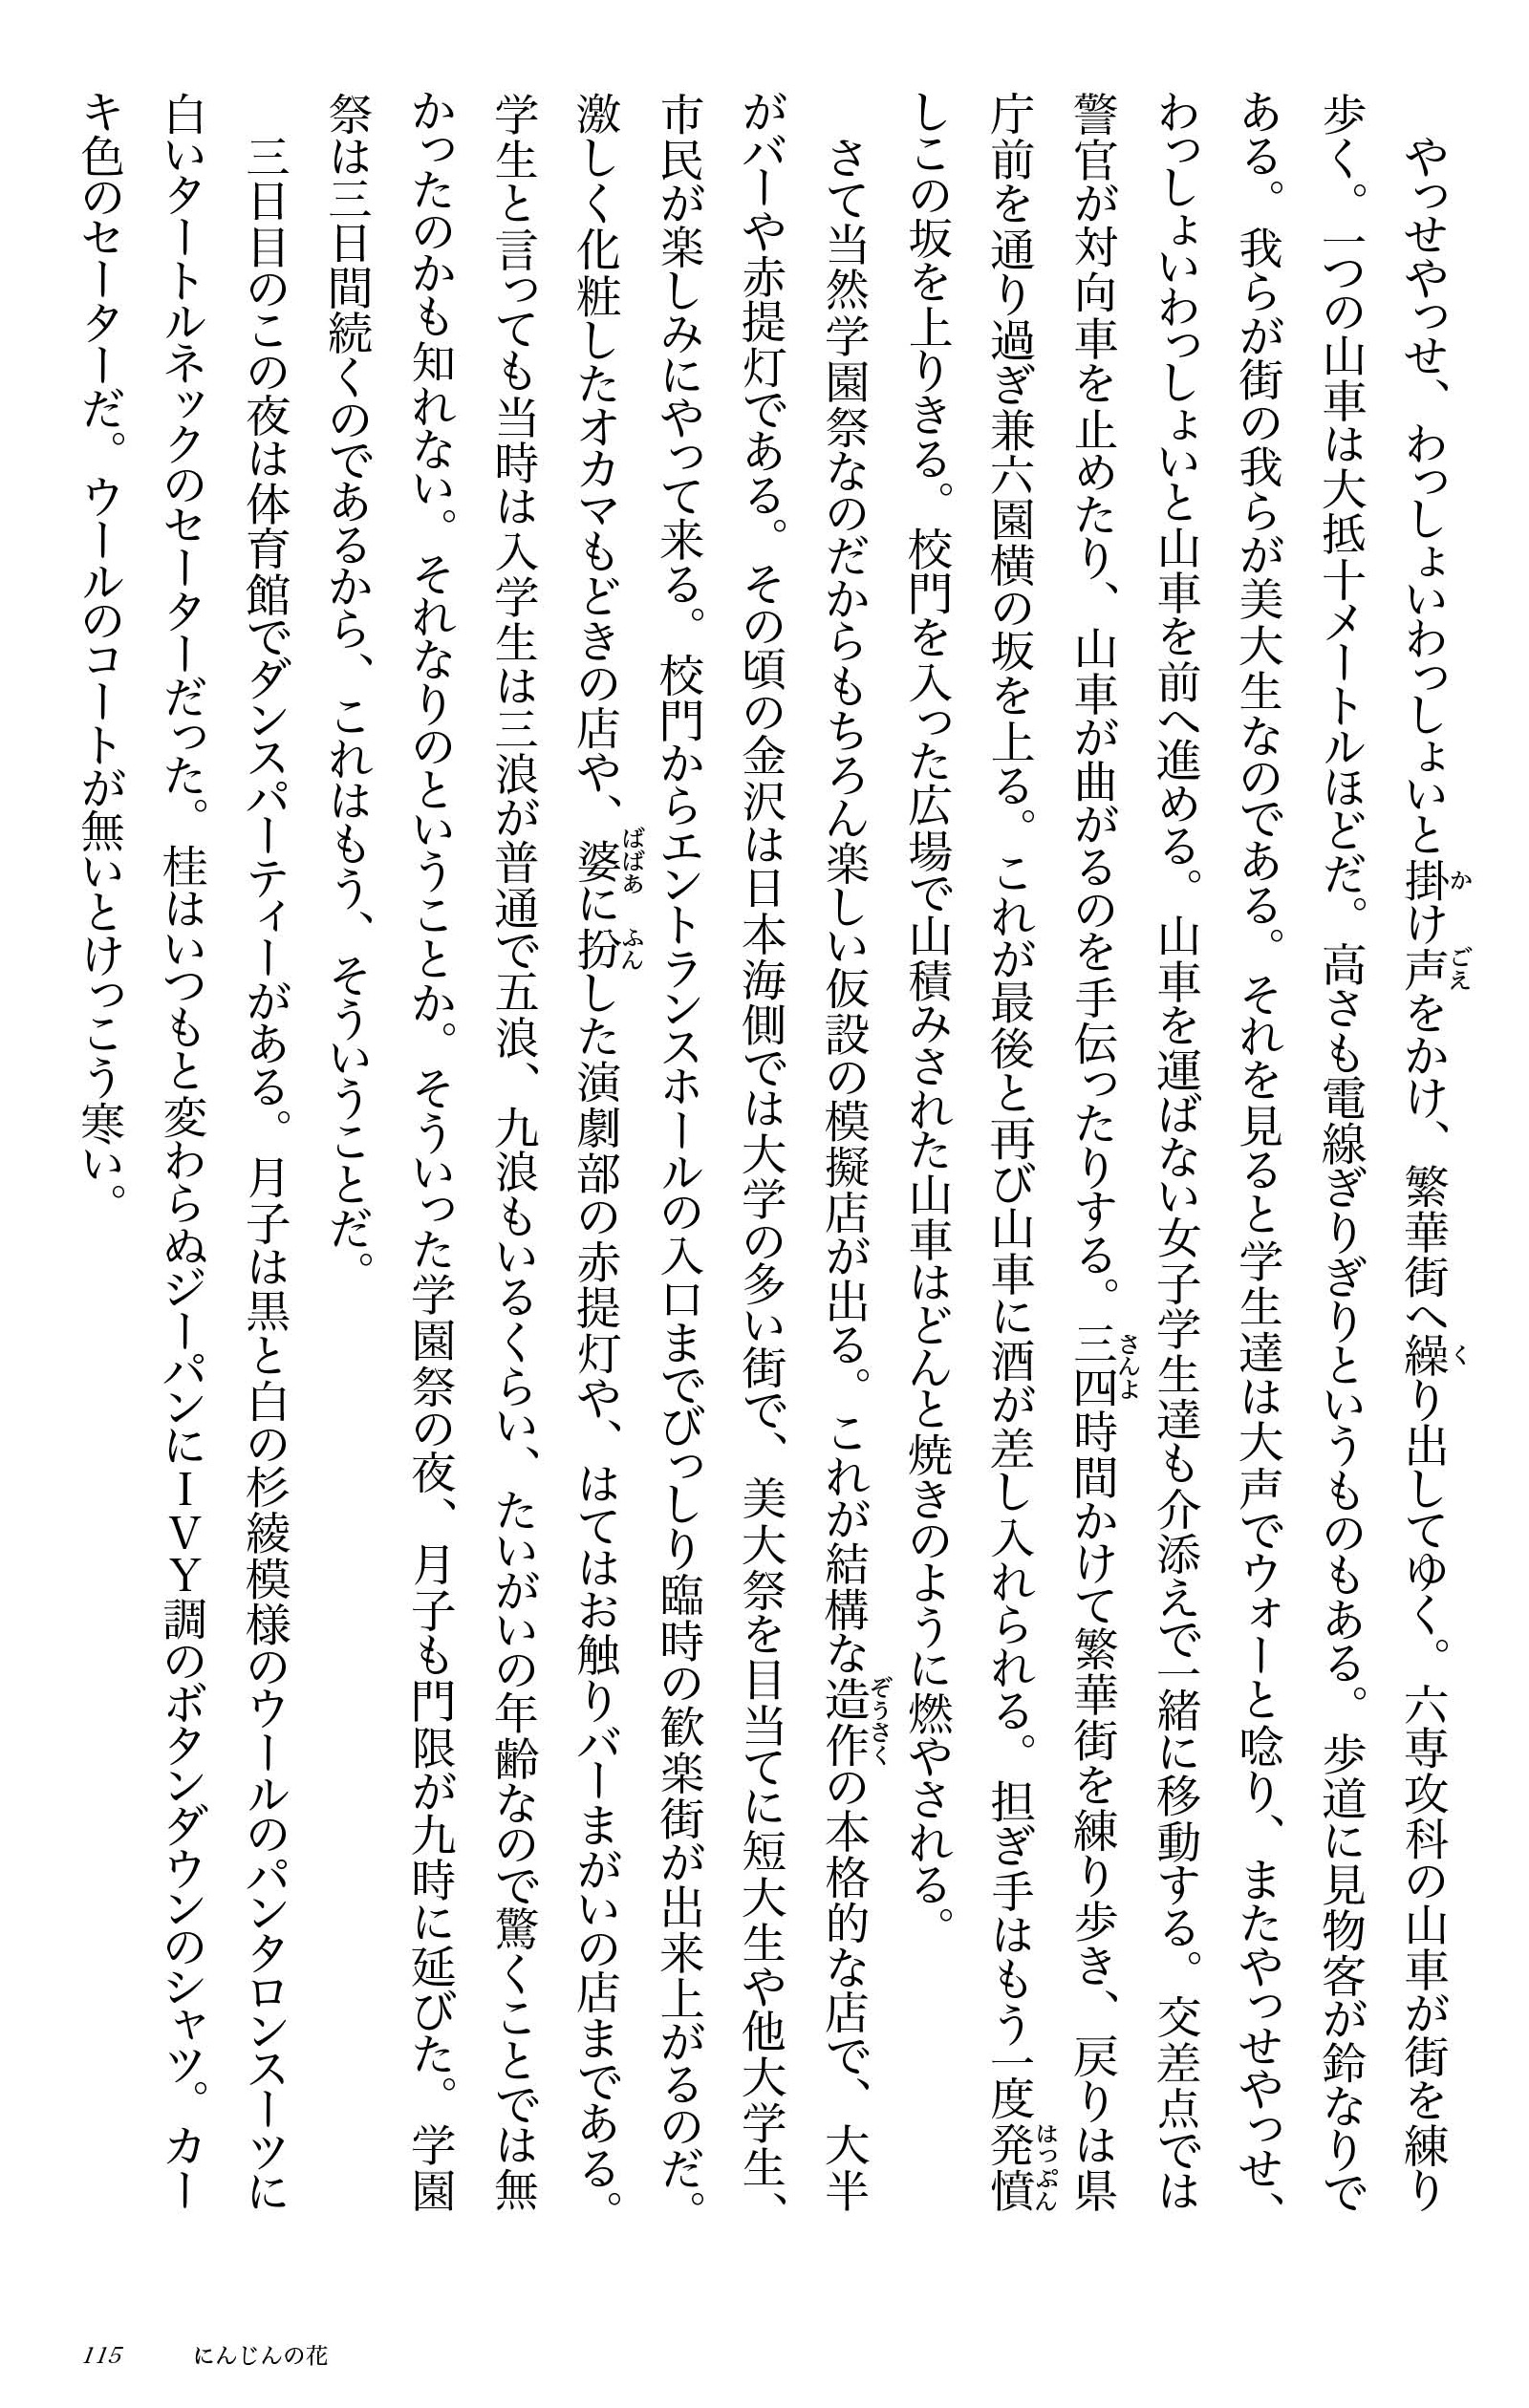 やっせやっせ、わっしょいわっしょいと掛け声をかけ、繁華街へ繰り出してゆく。六専攻科の山車が街を練り
歩く。一つの山車は大抵十メートルほどだ。高さも電線ぎりぎりというものもある。歩道に見物客が鈴なりで
ある。我らが街の我らが美大生なのである。それを見ると学生達は大声でウォーと唸り、またやっせやっせ、
わっしょいわっしょいと山車を前へ進める。山車を運ばない女子学生達も介添えで一緒に移動する。交差点では
警官が対向車を止めたり、山車が曲がるのを手伝ったりする。三四時間かけて繁華街を練り歩き、戻りは県
庁前を通り過ぎ兼六園横の坂を上る。これが最後と再び山車に酒が差し入れられる。担ぎ手はもう一度発憤
しこの坂を上りきる。校門を入った広場で山積みされた山車はどんと焼きのように燃やされる。
　さて当然学園祭なのだからもちろん楽しい仮設の模擬店が出る。これが結構な造作の本格的な店で、大半
がバーや赤提灯である。その頃の金沢は日本海側では大学の多い街で、美大祭を目当てに短大生や他大学生、
市民が楽しみにやって来る。校門からエントランスホールの入口までびっしり臨時の歓楽街が出来上がるのだ。
激しく化粧したオカマもどきの店や、婆に扮した演劇部の赤提灯や、はてはお触りバーまがいの店まである。
学生と言っても当時は入学生は三浪が普通で五浪、九浪もいるくらい、たいがいの年齢なので驚くことでは無
かったのかも知れない。それなりのということか。そういった学園祭の夜、月子も門限が九時に延びた。学園
祭は三日間続くのであるから、これはもう、そういうことだ。
　三日目のこの夜は体育館でダンスパーティーがある。月子は黒と白の杉綾模様のウールのパンタロンスーツに
白いタートルネックのセーターだった。桂はいつもと変わらぬジーパンにＩＶＹ調のボタンダウンのシャツ。カー
キ色のセーターだ。ウールのコートが無いとけっこう寒い。
115　にんじんの花